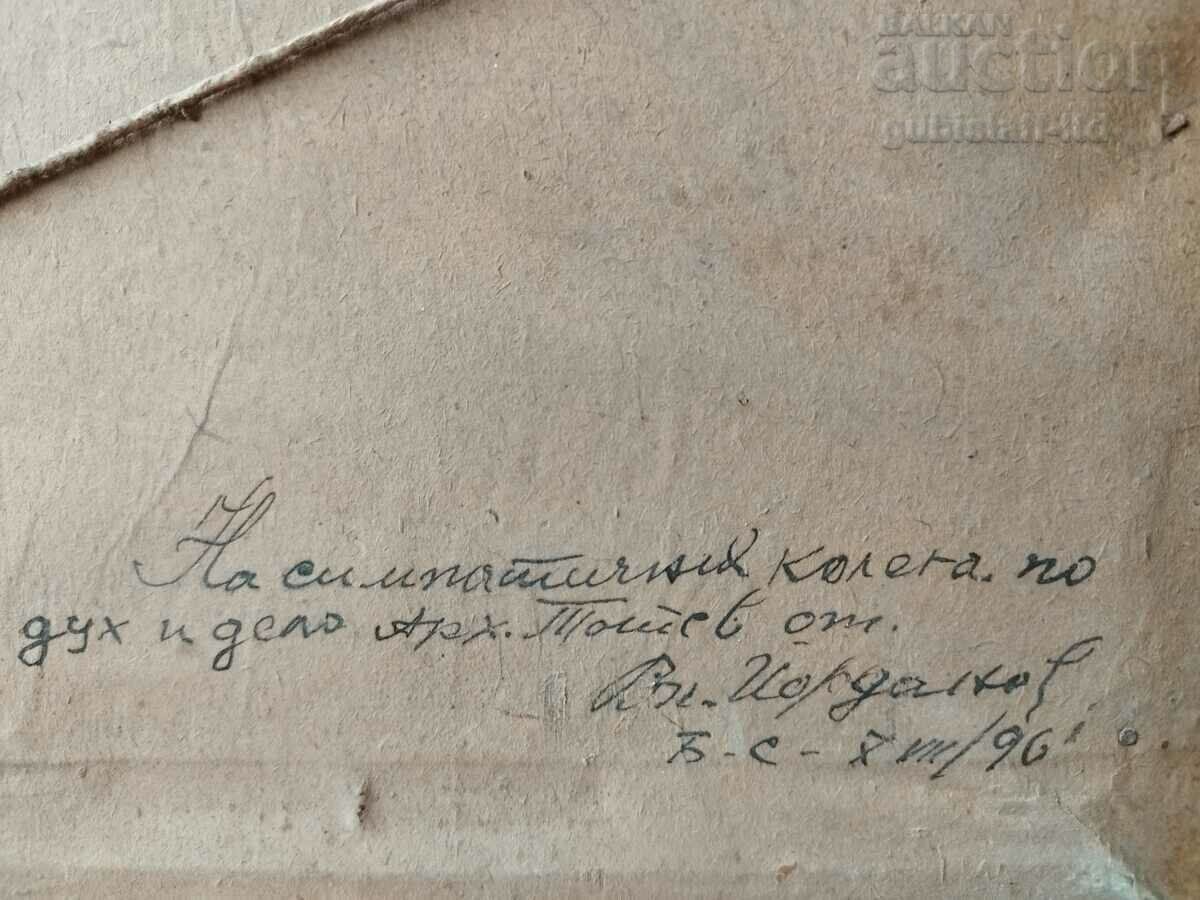 BALKAN
auction
gubislafi-ltd
На симпатичния колега. по
дух и дело Арх. Тотев от.
Вл. Йорданов
Б-с-